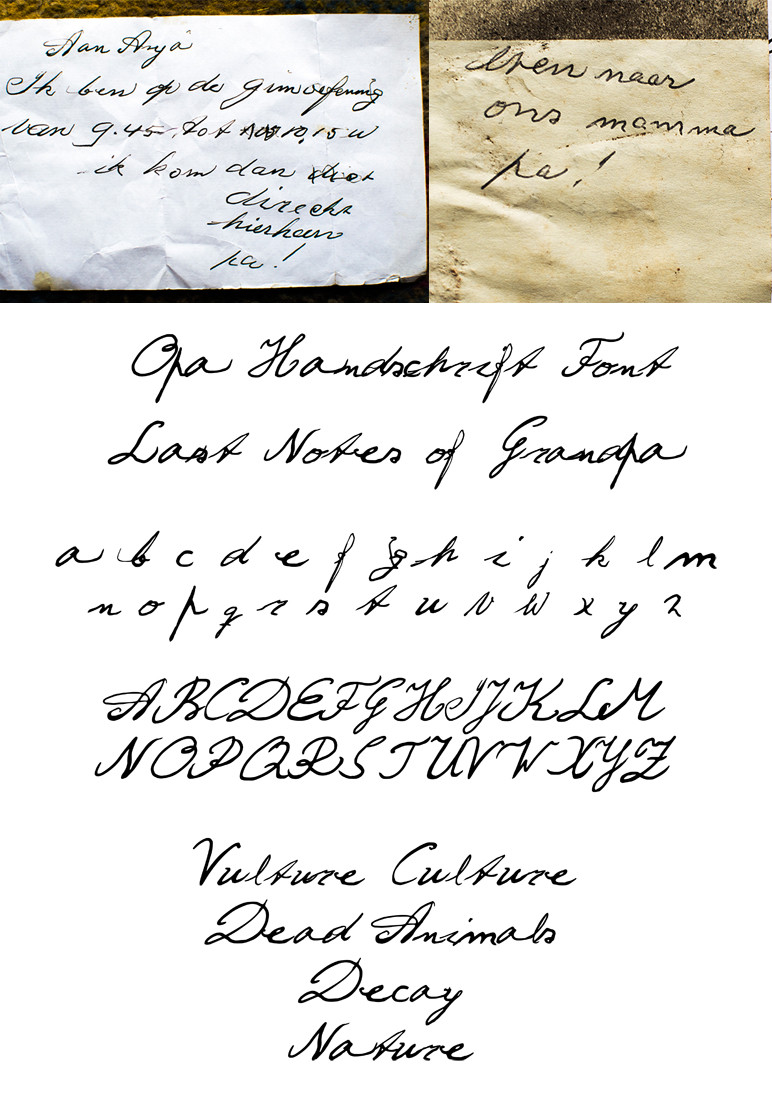 Aan Anja
Ik ben op de gimoefening
van 9.45 tot 10.15 u
ik kom dan
direckt
hierheen
pa!
even naar
ons mamma
pa!
Opa Handschrift Font
Last Notes of Grandpa
a b c d e f g h i j k l m
n o p q r s t u v w x y z
ABCDEFGHIJKLM
NOPQRSTUVWXYZ
Vulture Culture
Dead Animals
Decay
Nature